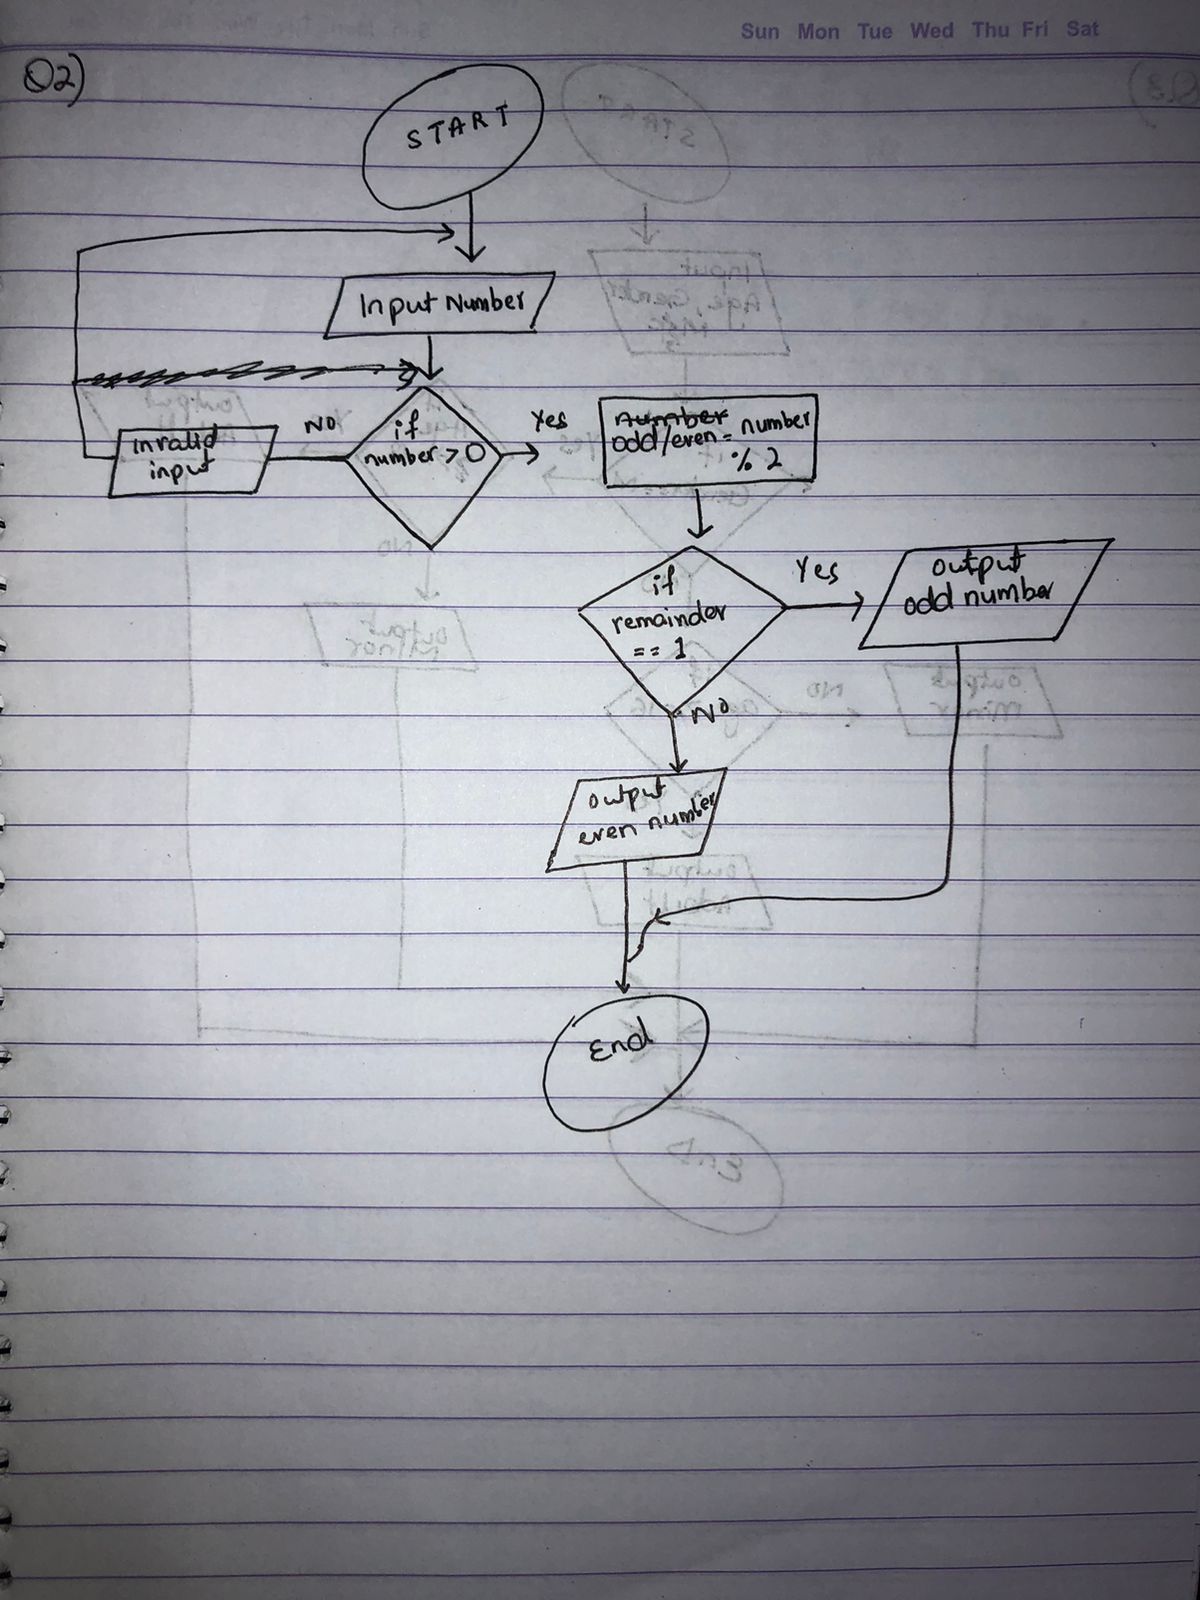 Sun Mon Tue Wed Thu Fri Sat
Q2)
START
Input Number
if
number > 0
NO
Yes
invalid
input
number
odd/even = number
% 2
if
remainder
== 1
Yes
output
odd number
NO
output
even number
End